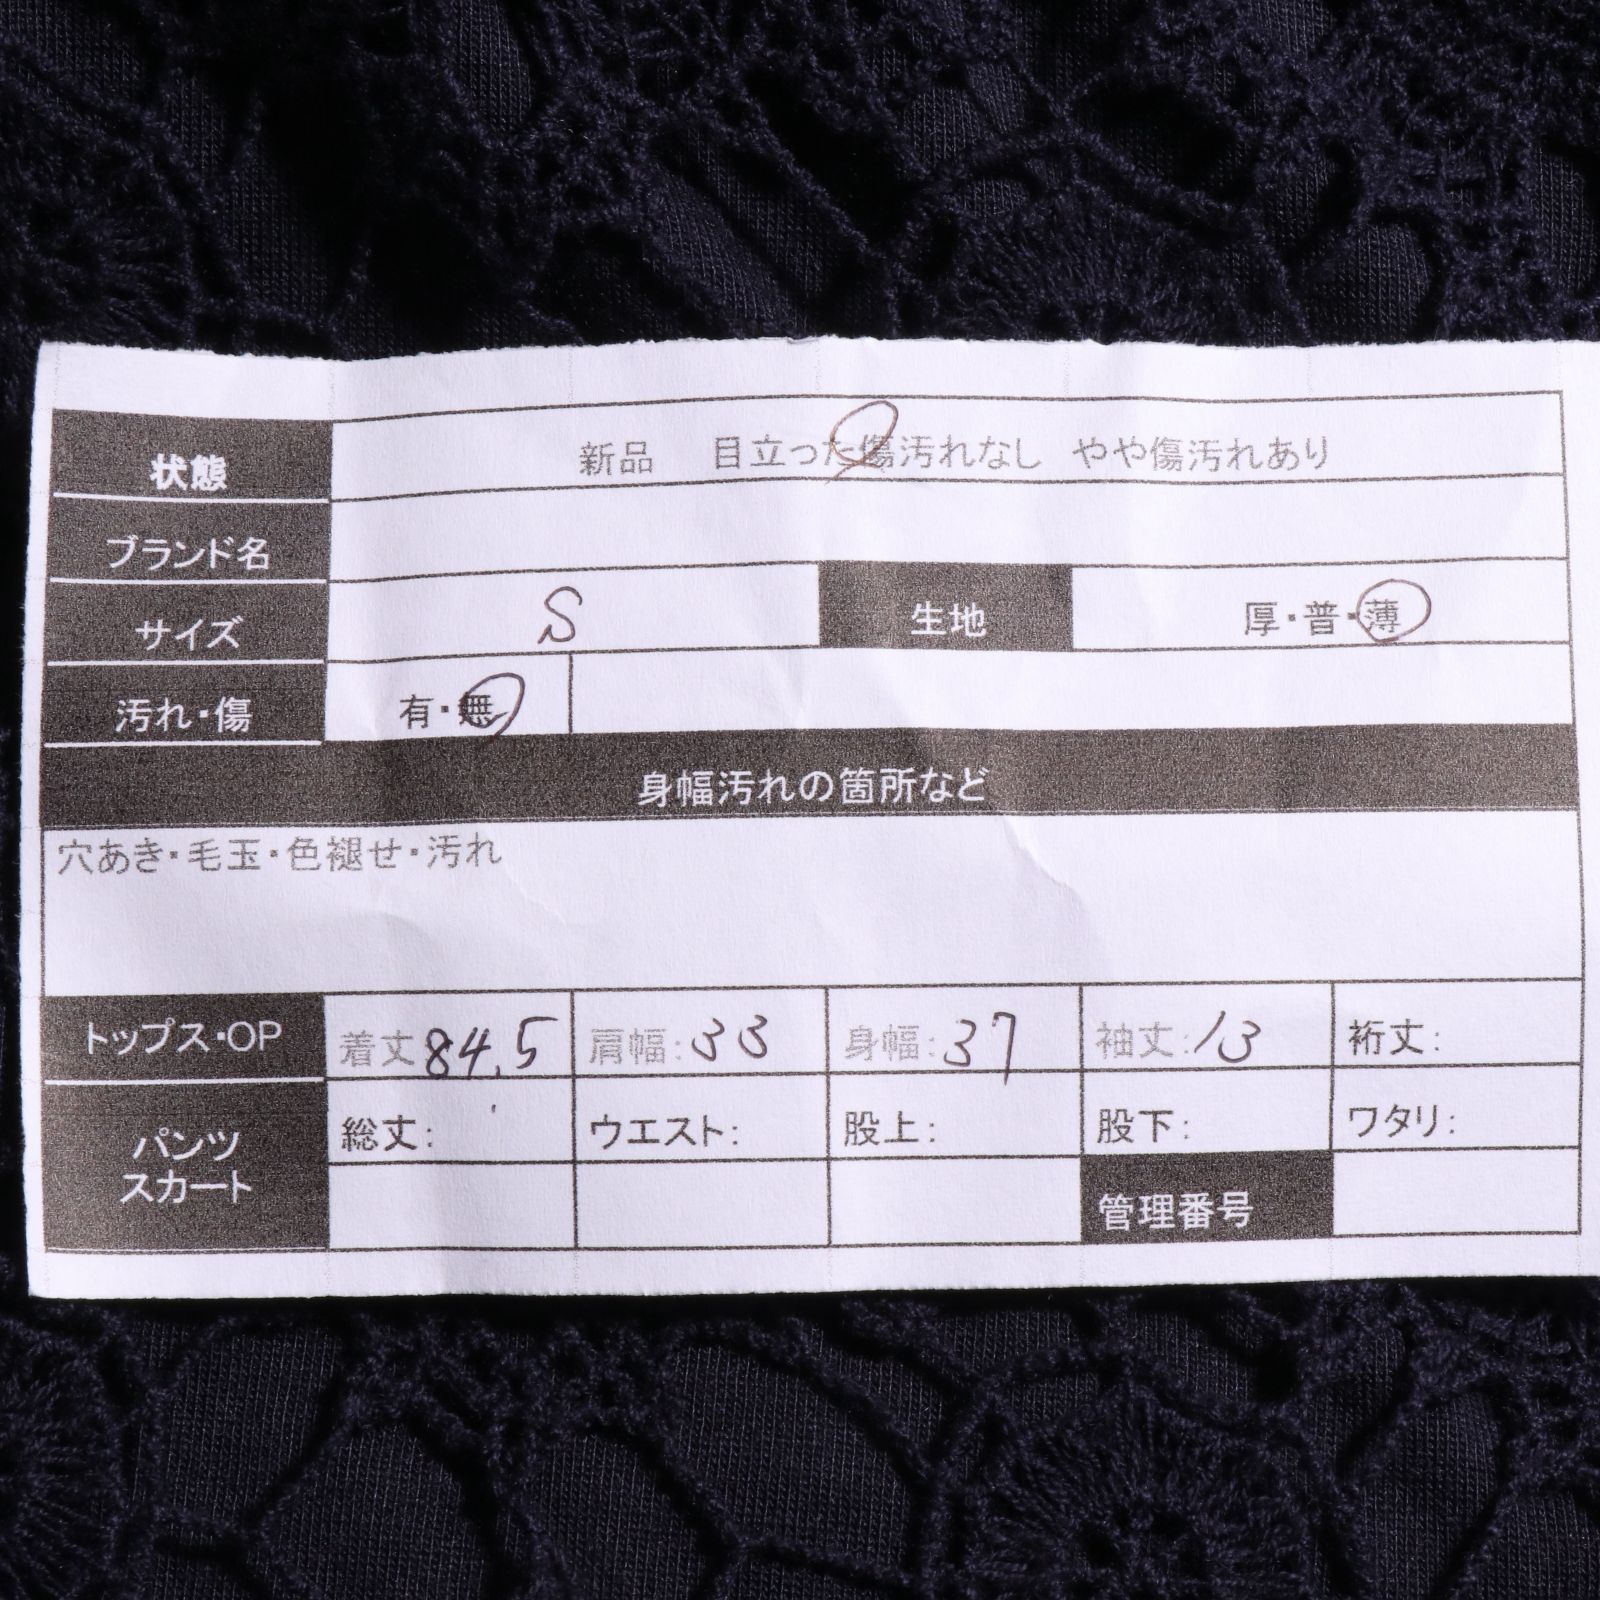 状態 新品 目立った傷汚れなし やや傷汚れあり
ブランド名
サイズ S 生地 厚・普・薄
汚れ・傷 有・無
身幅汚れの箇所など
穴あき・毛玉・色褪せ・汚れ
トップス・OP 着丈 84.5 肩幅: 33 身幅: 37 袖丈: 13 裄丈:
パンツ スカート 総丈: ウエスト: 股上: 股下: ワタリ:
管理番号